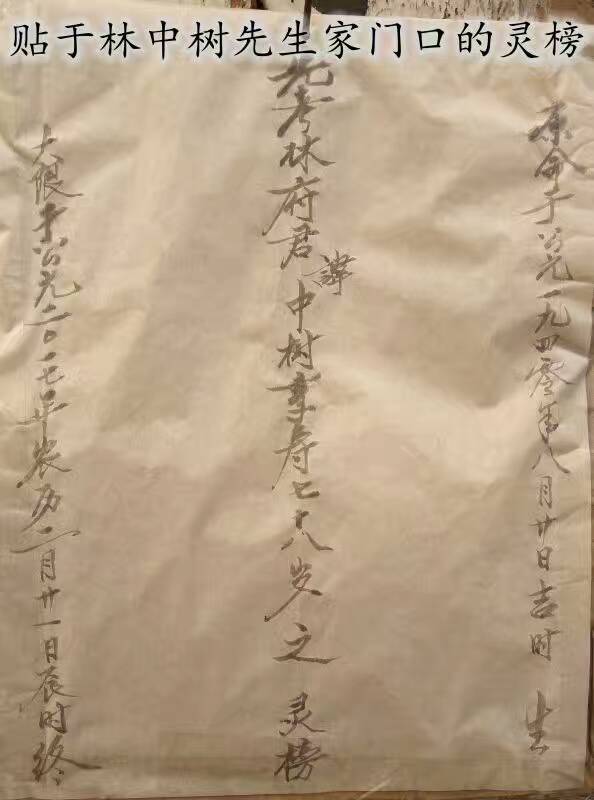 贴于林中树先生家门口的灵榜
原命于公元一九四零年八月廿日吉时 生
先考林府君諱中树享寿七十八岁之 灵榜
大限于公元二〇一七年农历二月廿一日辰时终